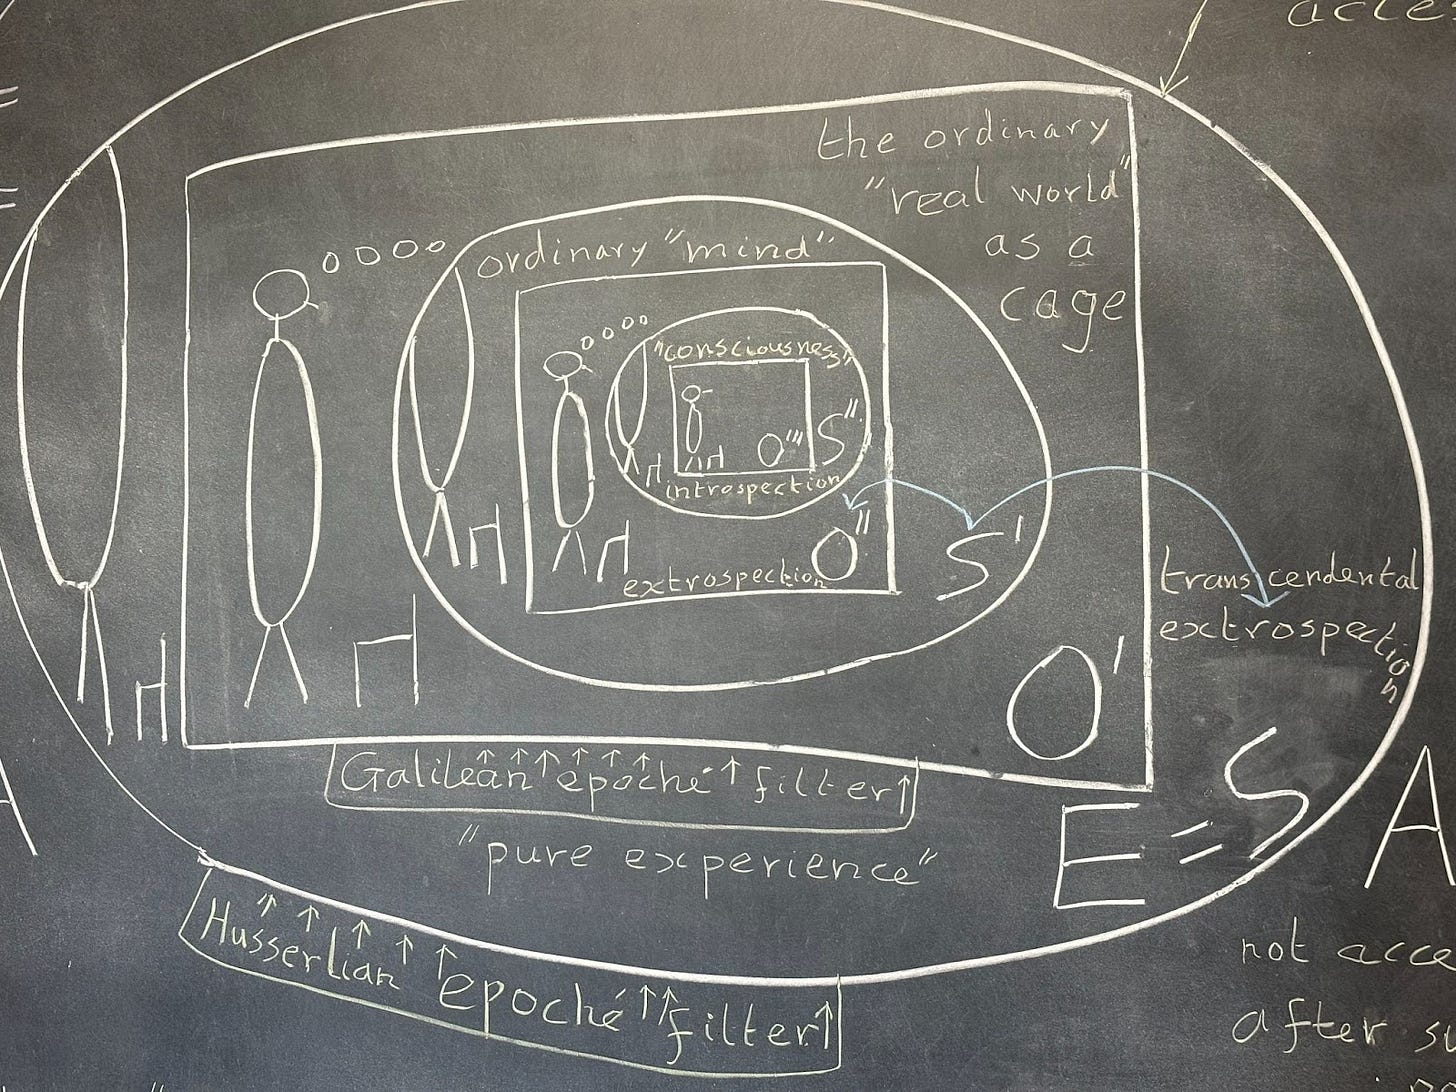 the ordinary
"real world"
as a
cage
ordinary "mind"
"consciousness"
O''' S''
introspection
O''
extrospection
S'
transcendental
extrospection
O'
Galilean epoché filter
"pure experience"
E = S
A
Husserlian epoché filter
not
after